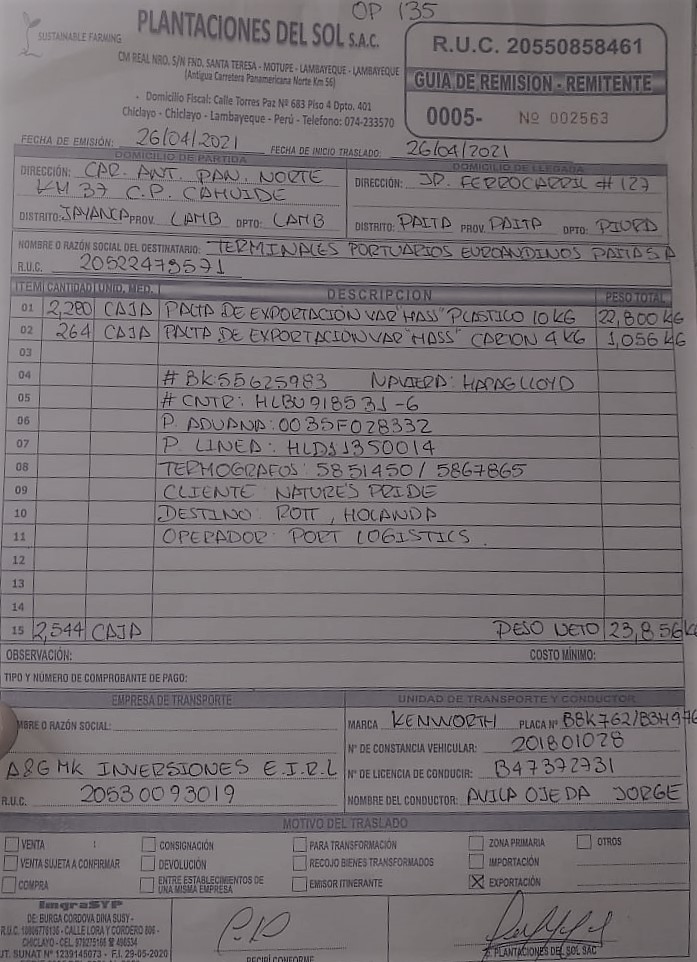 OP 135
SUSTAINABLE FARMING
PLANTACIONES DEL SOL S.A.C.
CM REAL NRO. S/N FND. SANTA TERESA - MOTUPE - LAMBAYEQUE - LAMBAYEQUE
(Antigua Carretera Panamericana Norte Km 56)
- Domicilio Fiscal: Calle Torres Paz Nº 683 Piso 4 Dpto. 401
Chiclayo - Chiclayo - Lambayeque - Perú - Telefono: 074-233570
R.U.C. 20550858461
GUIA DE REMISION - REMITENTE
0005- Nº 002563
FECHA DE EMISIÓN: 26/04/2021 FECHA DE INICIO TRASLADO: 26/04/2021
DOMICILIO DE PARTIDA
DIRECCIÓN: CAR. ANT. PAN. NORTE
KM 37 C.P. CAHUIDE
DISTRITO: JAYANCA PROV. LAMB DPTO: LAMB
DOMICILIO DE LLEGADA
DIRECCIÓN: JR. FERROCARRIL # 127
DISTRITO: PAITA PROV. PAITA DPTO: PIURA
NOMBRE O RAZÓN SOCIAL DEL DESTINATARIO: TERMINALES PORTUARIOS EUROANDINOS PAITA S A
R.U.C. 20522473571
ITEM CANTIDAD UNID. MED. DESCRIPCION PESO TOTAL
01 2,280 CAJA PALTA DE EXPORTACIÓN VAR "HASS" PLASTICO 10 KG 22,800 KG
02 264 CAJA PALTA DE EXPORTACIÓN VAR "HASS" CARTON 4 KG 1,056 KG
03
04 # BK: 55625983 NAVIERA: HAPAG LLOYD
05 # CNTR: HLBU 918531-6
06 P. ADUANA: 0035F028332
07 P. LINEA: HLD11350014
08 TERMOGRAFOS: 5851450 / 5867865
09 CLIENTE NATURE'S PRIDE
10 DESTINO: ROTT, HOLANDA
11 OPERADOR: PORT LOGISTICS
12
13
14
15 2,544 CAJA PESO NETO 23,856 KG
OBSERVACIÓN: COSTO MÍNIMO:
TIPO Y NÚMERO DE COMPROBANTE DE PAGO:
EMPRESA DE TRANSPORTE
MBRE O RAZÓN SOCIAL:
A&G MK INVERSIONES E.I.R.L
R.U.C. 20530093019
UNIDAD DE TRANSPORTE Y CONDUCTOR
MARCA KENWORTH PLACA Nº B8K762/B3H976
Nº DE CONSTANCIA VEHICULAR: 201801028
Nº DE LICENCIA DE CONDUCIR: B47372731
NOMBRE DEL CONDUCTOR: AVILA OJEDA JORGE
MOTIVO DEL TRASLADO
VENTA : CONSIGNACIÓN PARA TRANSFORMACIÓN ZONA PRIMARIA OTROS
VENTA SUJETA A CONFIRMAR DEVOLUCIÓN RECOJO BIENES TRANSFORMADOS IMPORTACIÓN
COMPRA ENTRE ESTABLECIMIENTOS DE UNA MISMA EMPRESA EMISOR ITINERANTE X EXPORTACIÓN
ImgraSYP
DE: BURGA CORDOVA DINA SUSY -
R.U.C. 10806778136 - CALLE LORA Y CORDERO 806 -
CHICLAYO - CEL. 978275168 # 496534
UT. SUNAT Nº 1239145073 - F.I. 29-05-2020
RECIBÍ CONFORME
P. PLANTACIONES DEL SOL SAC